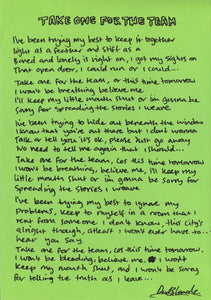 TAKE ONE FOR THE TEAM
I've been trying my best to keep it together
Light as a feather and stiff as a
Board and lonely is night on, I got my sights on
That open door, I could run or I could...
Take one for the team, or this time tomorrow
I won't be breathing, believe me
I'll keep my little mouth shut or im gonna be
Sorry for spreading the stories I weave.
I've been trying to hide out beneath the window
I know that you're out there but I dont wanna
Talk or tell you it's ok, please just go away
No need to tell me again what I should...
Take one for the team, cos this time tomorrow
I won't be breathing, believe me, I'll keep my
little mouth shut or im gonna be sorry for
Spreading the stories I weave
I've been trying my best to ignore my
problems, keep to myself in a room that I
rent from someone I don't know, this city's
alright though, at least I won't ever have to...
hear you say
Take one for the team, cos this time tomorrow.
I won't be bleeding, believe me. I won't
keep my mouth shut, and I won't be sorry
for telling the truth as I leave...